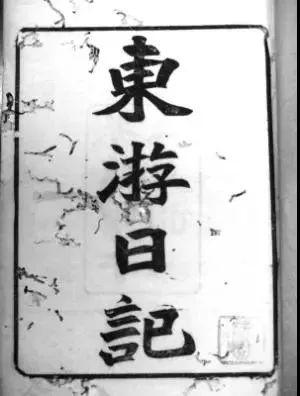 東游日記